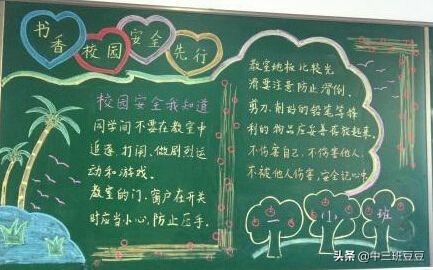 书香校园 安全先行
校园安全我知道
同学间不要在教室中
追逐、打闹、做剧烈运
动和游戏。
教室的门、窗户在开关
时应当小心,防止压手。
教室地板比较光
滑要注意防止滑倒。
剪刀、削好的铅笔等锋
利的物品应妥善存放起来。
不伤害自己,不伤害他人,
不被他人伤害,安全记心中。
一(1)班
头条 @中三班豆豆